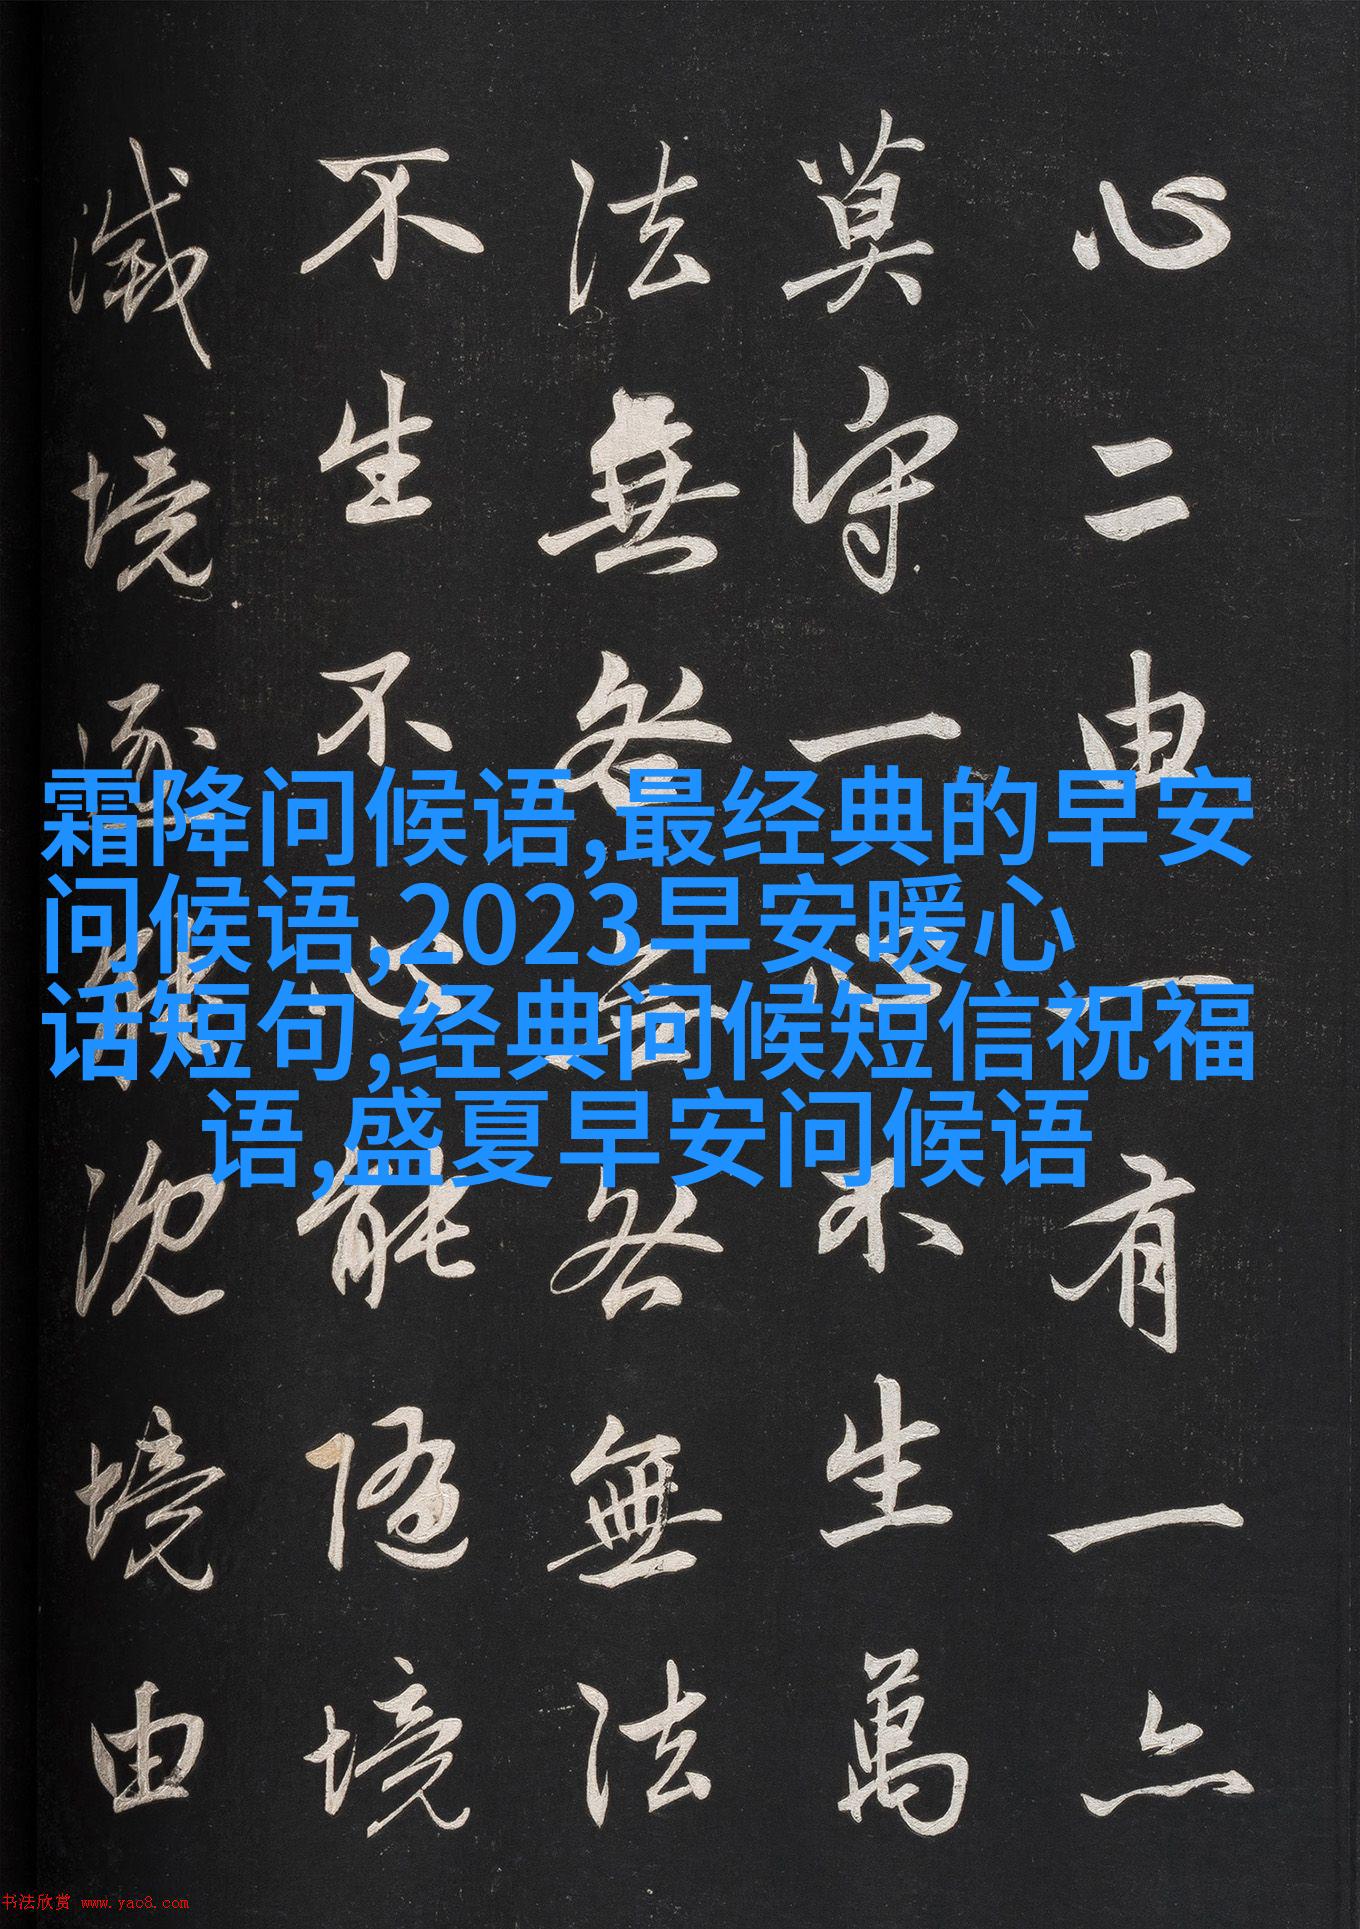 心二由一有一亦
莫守一心不生萬
法無咎無咎無法
不生不心能隨境
滅境逐能沉境由
霜降问候语,最经典的早安
问候语,2023早安暖心
话短句,经典问候短信祝福
语,盛夏早安问候语
书法欣赏 www.yac8.com